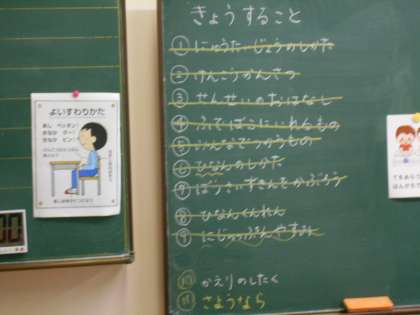 きょうすること
① にゅうたいじょうのしかた
② けんこうかんさつ
③ せんせいのおはなし
④ ふでばこにいれるもの
⑤ みんなでつかうもの
⑥ ひなんのしかた
⑦ ぼうさいずきんをかぶろう
⑧ ひなんくんれん
⑨ にじゅっぷんやすみ
⑩ かえりのしたく
⑪ さようなら
よいすわりかた
あし ペッタン
おなか グー
せなか ピン